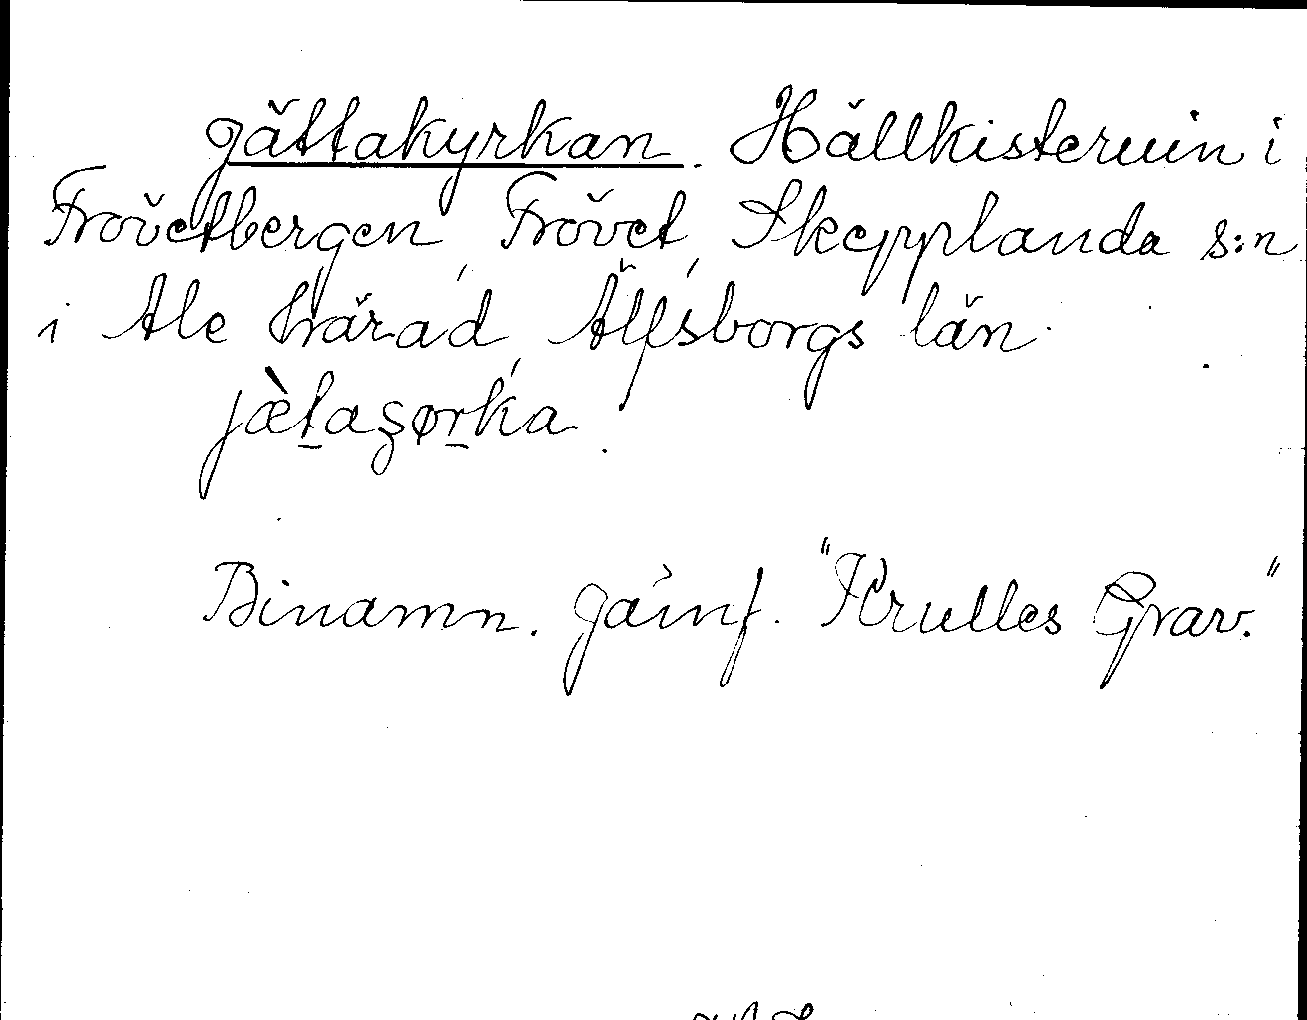 Jättakyrkan. Hällkisteruin i
Frövetbergen, Frövet, Skepplanda s:n
i Ale härad, Älfsborgs län.
jæ̀t̠aʂør̠ka.
Binamn. Jämf. "Krulles Grav."